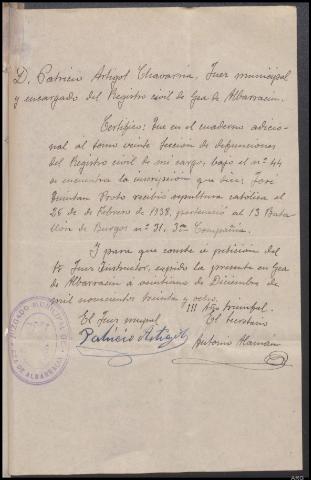 D. Patricio Artigot Chavarria, Juez municipal
y encargado del Registro civil de Gea de Albarracin.
Certifico: Que en el cuaderno adicio-
nal al tomo veinte sección de defunciones
del Registro civil de mi cargo, bajo el nº 44
se encuentra la inscripcion que dice: José
Quintan Proto recibió sepultura católica el
26 de de Febrero de 1938, perteneció al 13 Bata-
llón de Burgos nº 31, 3ª Compañia.
Y para que conste a peticion del
Sr Juez Instructor, expido la presente en Gea
de Albarracin a de Diciembre de
mil novecientos treinta y ocho.
III Año triunfal.
El Juez mupal
El Secretario
Patricio Artigot
Antonio Alaman
JUZGADO MUNICIPAL DE
GEA DE ALBARRACIN